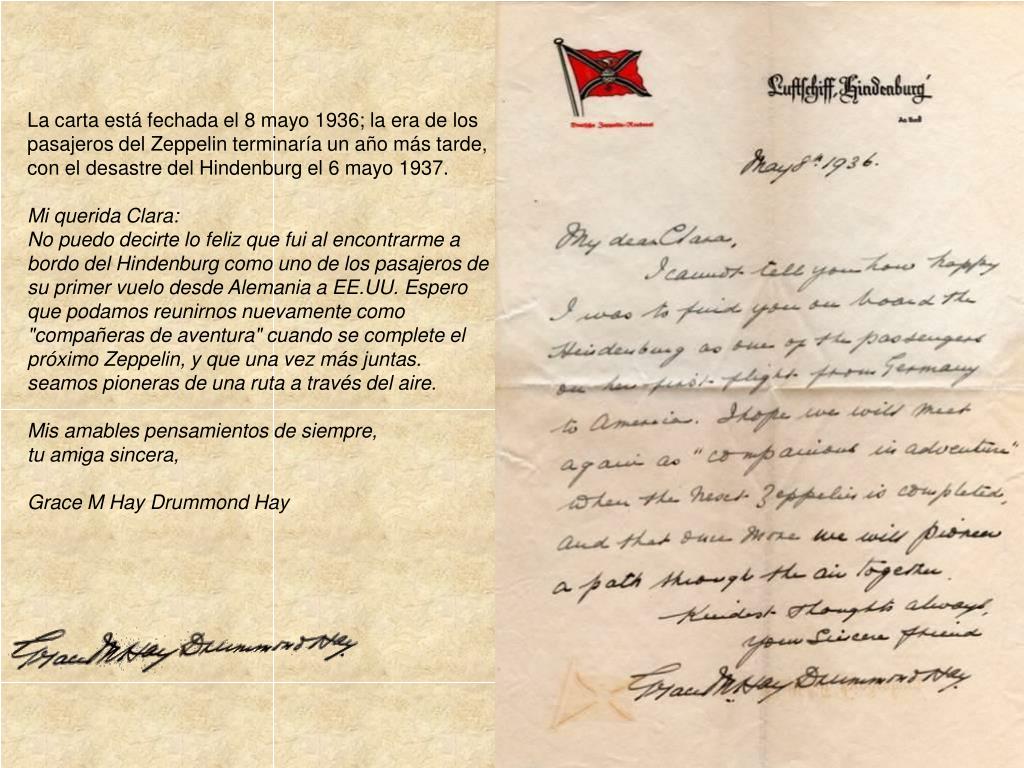 La carta está fechada el 8 mayo 1936; la era de los
pasajeros del Zeppelin terminaría un año más tarde,
con el desastre del Hindenburg el 6 mayo 1937.
Mi querida Clara:
No puedo decirte lo feliz que fui al encontrarme a
bordo del Hindenburg como uno de los pasajeros de
su primer vuelo desde Alemania a EE.UU. Espero
que podamos reunirnos nuevamente como
"compañeras de aventura" cuando se complete el
próximo Zeppelin, y que una vez más juntas.
seamos pioneras de una ruta a través del aire.
Mis amables pensamientos de siempre,
tu amiga sincera,
Grace M Hay Drummond Hay
Grace M Hay Drummond Hay
Luftschiff „Hindenburg"
An Bord
Deutsche Zeppelin-Reederei
May 8th 1936.
My dear Clara,
I cannot tell you how happy
I was to find you on board the
Hindenburg as one of the passengers
on her first flight from Germany
to America. I hope we will meet
again as "companions in adventure"
when the next Zeppelin is completed,
and that once more we will pioneer
a path through the air together.
Kindest thoughts always,
Your Sincere friend
Grace M. Hay Drummond Hay.